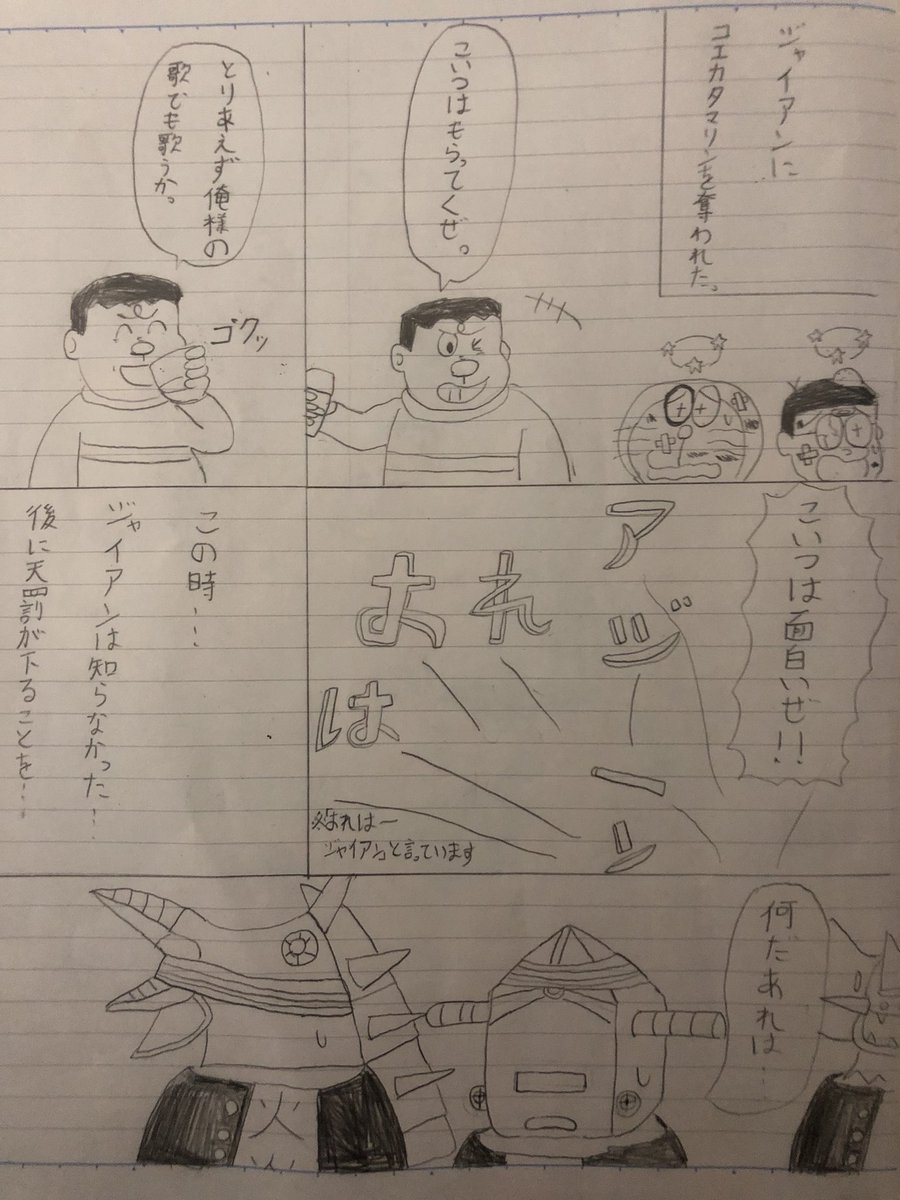 ジャイアンに
コエカタマリンを奪われた。
こいつはもらってくぜ。
とりあえず俺様の
歌でも歌うか。
ゴクッ
こいつは面白いぜ!!
アヅーン
れ
よ
は
※おれはー
ジャイアンと言っています
この時…
ジャイアンは知らなかった…
後に天罰が下ることを…
何だあれは…
火